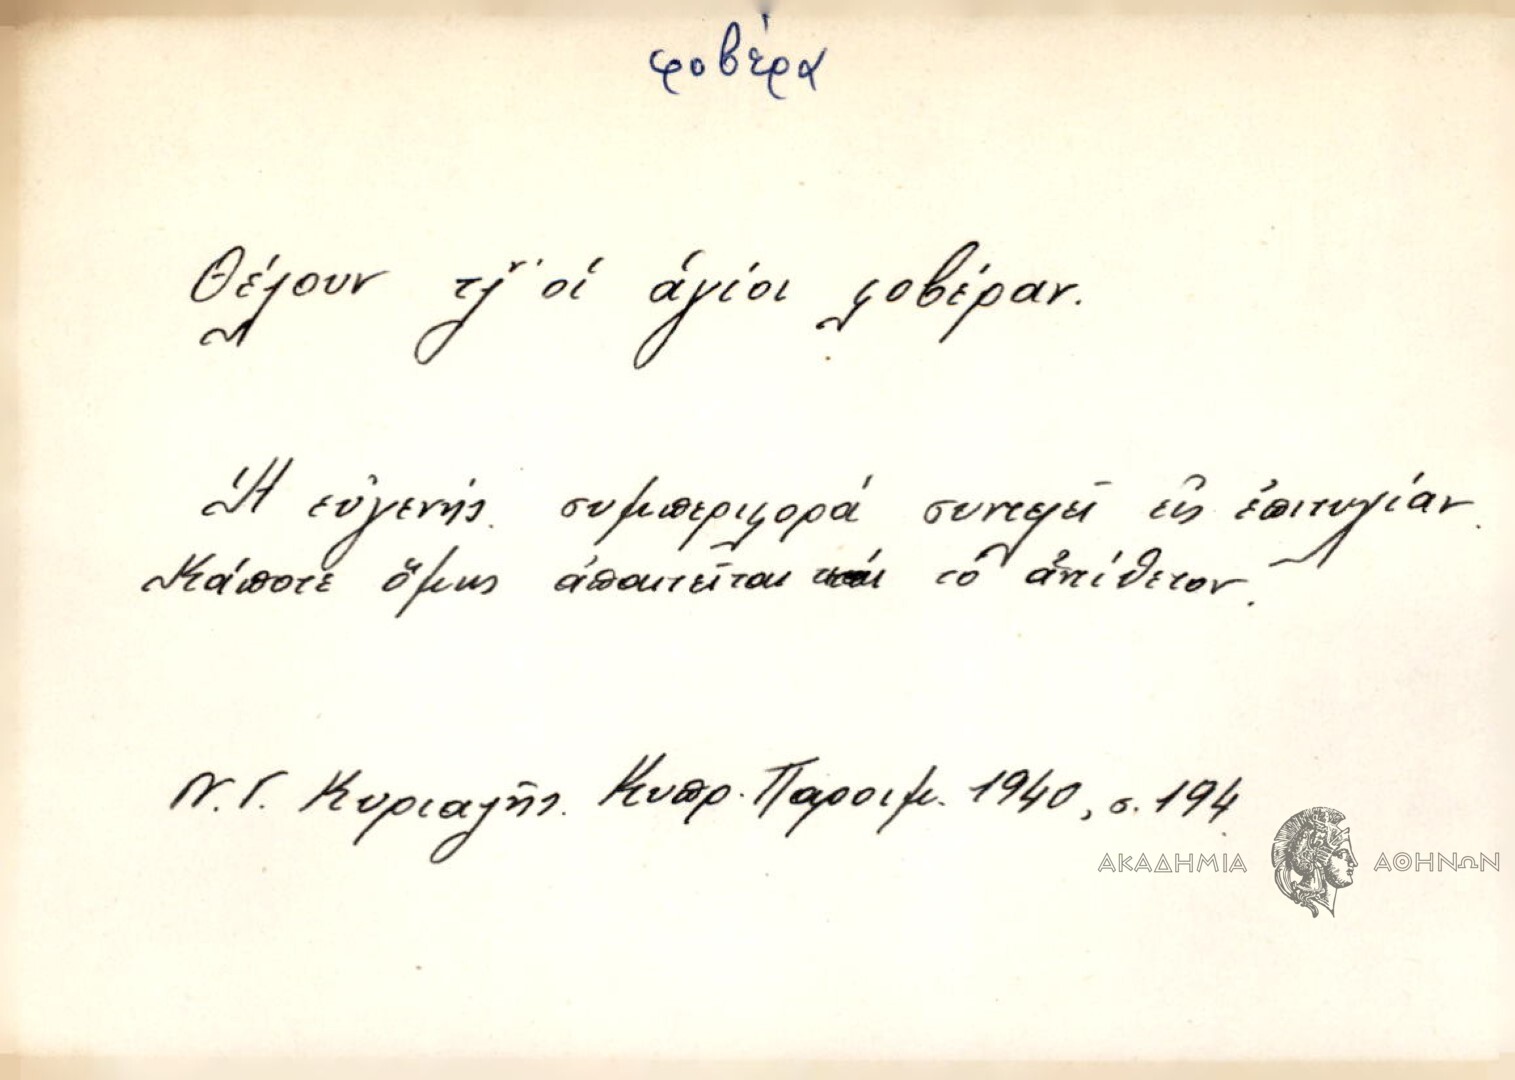 φοβέρα
Θέλουν τζ̌' οἱ ἅγιοι φοβέραν.
Ἡ εὐγενής συμπεριφορά συντελεῖ εἰς ἐπιτυχίαν.
Κάποτε ὅμως ἀπαιτεῖται καί τό ἀντίθετον.
Ν. Γ. Κυριαζῆς. Κυπρ. Παροιμ. 1940, σ. 194
ΑΚΑΔΗΜΙΑ ΑΘΗΝΩΝ